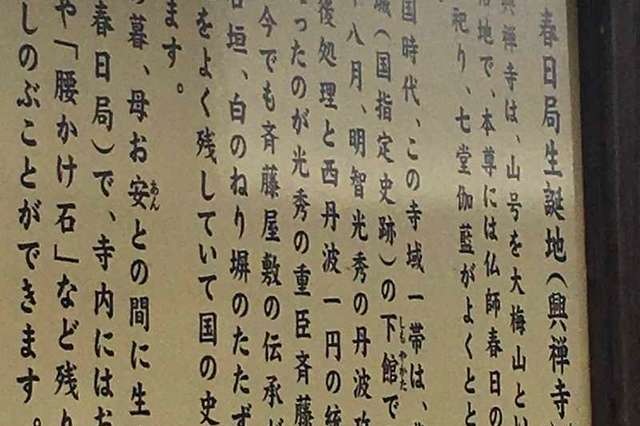 春日局生誕地(興禅寺
興禅寺は、山号を大梅山とい
地で、本尊には仏師春日の
祀り、七堂伽藍がよくとと
国時代、この寺域一帯は、
城(国指定史跡)の下館で
しもやかた
十八月、明智光秀の丹波攻
後処理と西丹波一円の統
ったのが光秀の重臣斉藤
今でも斉藤屋敷の伝承が
石垣、白のねり塀のたたず
をよく残していて国の史
ます。
の暮、母お安との間に生
あん
春日局)で、寺内にはお
や「腰かけ石」など残り
しのぶことができます。